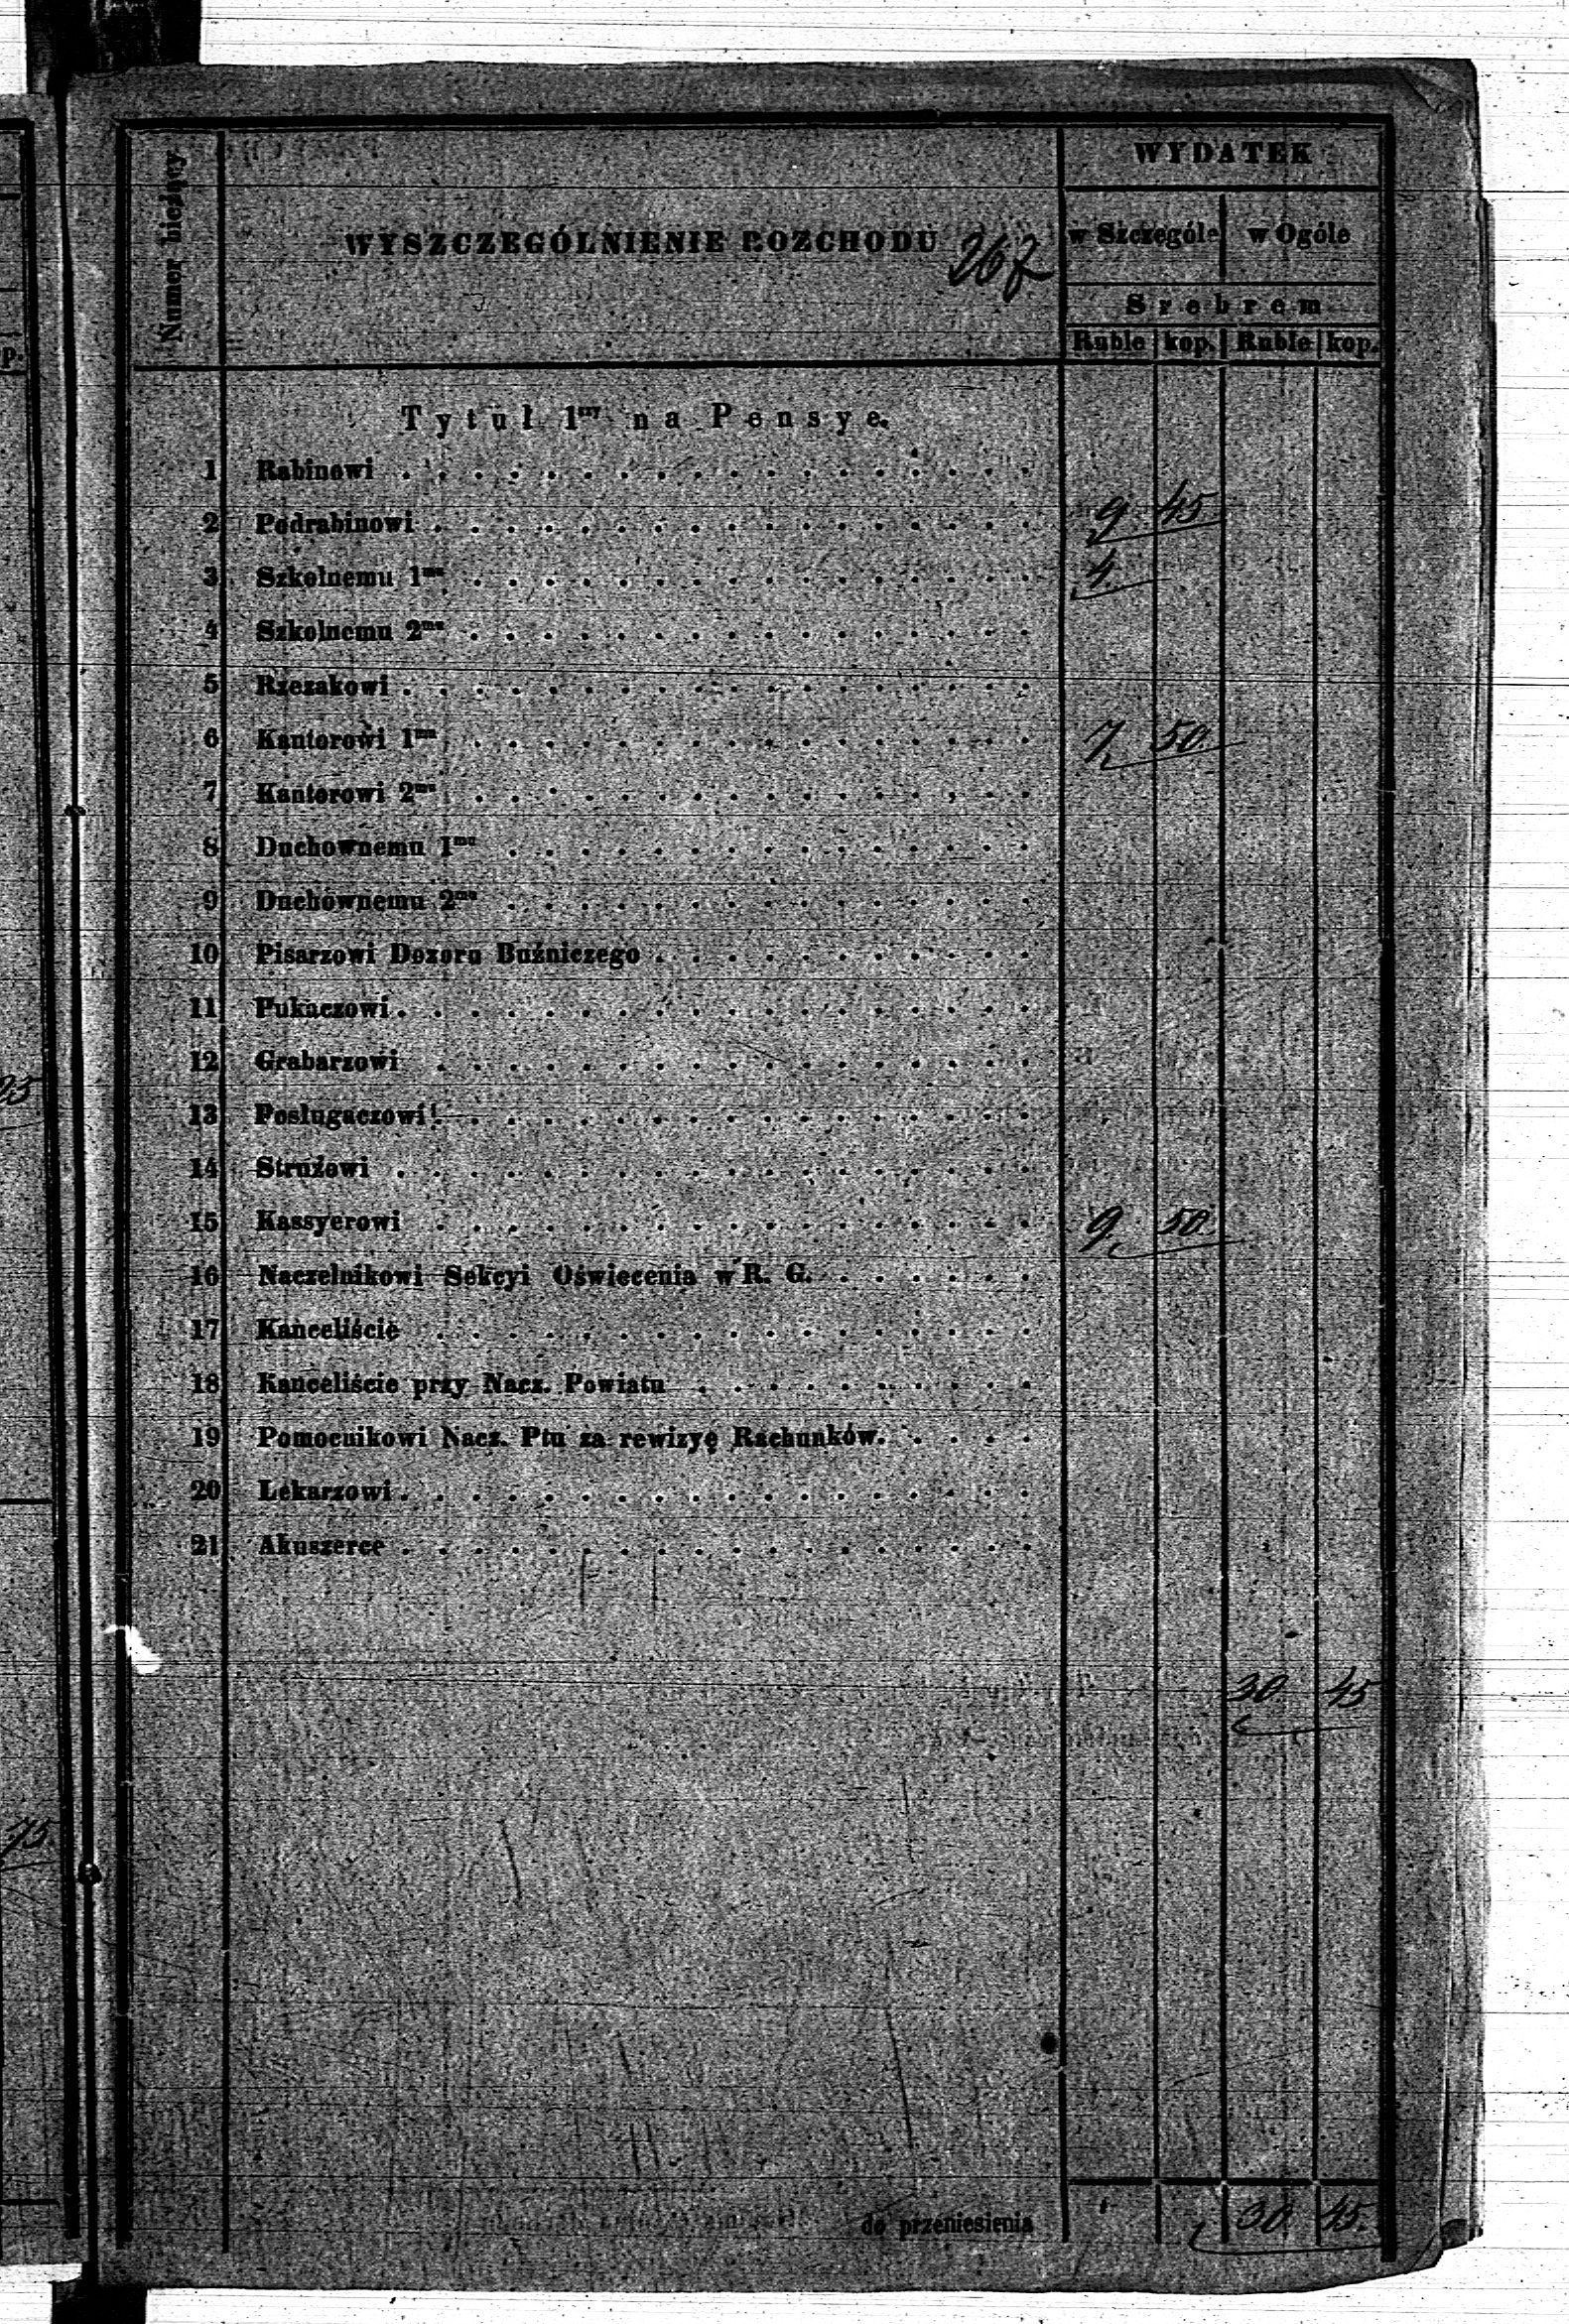 Numer bieżący
WYSZCZEGÓLNIENIE ROZCHODU 267
WYDATEK
w Szczególe w Ogóle
Srebrem
Ruble kop. Ruble kop.
Tytuł 1szy na Pensye.
1 Rabinowi
2 Podrabinowi 9 45
3 Szkolnemu 1mu 4.
4 Szkolnemu 2mu
5 Rzezakowi
6 Kantorowi 1mu 7 50.
7 Kantorowi 2mu
8 Duchownemu 1mu
9 Duchownemu 2mu
10 Pisarzowi Dozoru Buźniczego
11 Pukaczowi
12 Grabarzowi
13 Posługaczowi
14 Stružowi
15 Kassyerowi 9. 50.
16 Naczelnikowi Sekcyi Oświecenia w R. G.
17 Kanceliście
18 Kanceliście przy Nacz. Powiatu
19 Pomocnikowi Nacz. Ptu za rewizyę Rachunków.
20 Lekarzowi
21 Akuszerce
30. 45
do przeniesienia 30. 45.
op.
25
75